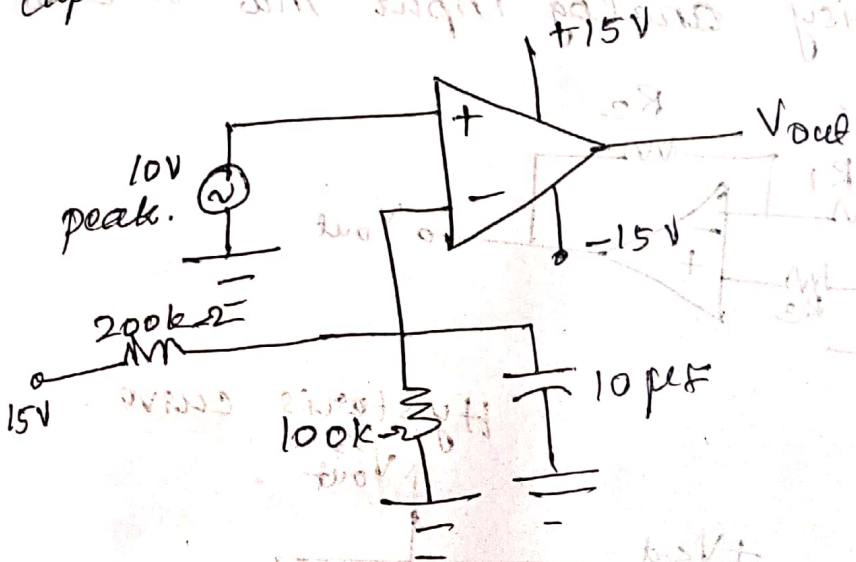 +15V
+
Vout
10V
peak.
-
-15V
200kΩ
15V
100kΩ
10 µF